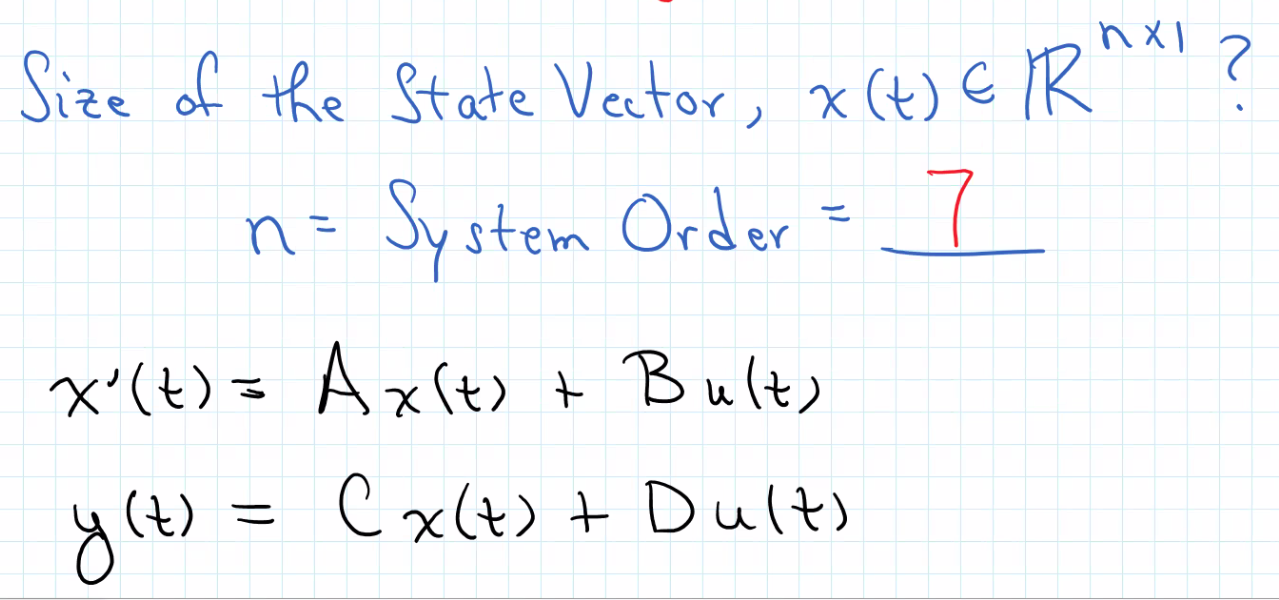 Size of the State Vector, x(t) ∈ ℝ^{n×1} ?
n = System Order = 7
x'(t) = Ax(t) + Bu(t)
y(t) = Cx(t) + Du(t)